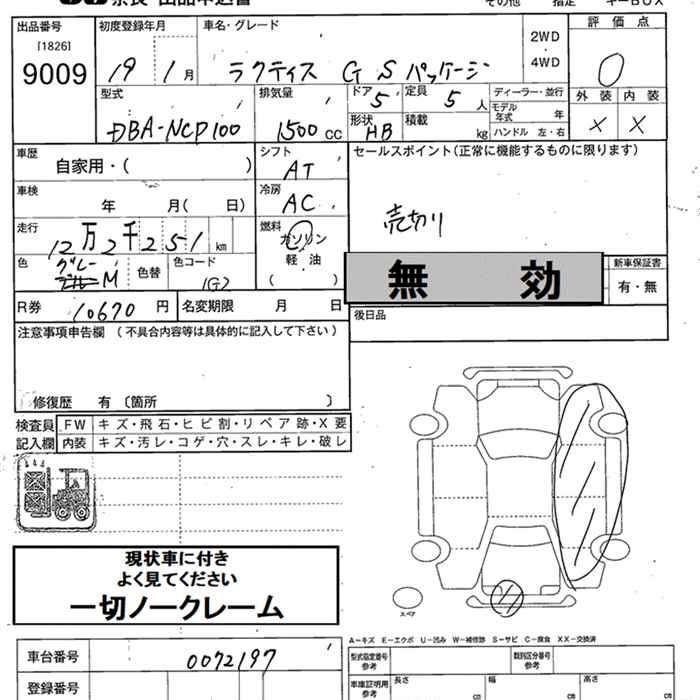 奈良 出品申込書 その他 指定 キーBOX
出品番号 初度登録年月 車名・グレード 2WD 評価点
[1826] ・
9009 19 1 月 ラクティス G S パッケージ 4WD 0
型式 排気量 ドア 5 定員 5 人 ディーラー・並行 外装 内装
モデル年式 年 × ×
DBA-NCP100 1500 cc 形状 HB 積載 kg ハンドル 左・右
車歴 シフト セールスポイント(正常に機能するものに限ります)
自家用・( ) AT
車検 冷房
年 月( 日) AC 売切り
走行 燃料
12万2千251 km ガソリン
色 色替 色コード 軽油 無効 新車保証書
グレーM 1G2 ( ) 有・無
R券 10670 円 名変期限 月 日 後日品
注意事項申告欄 (不具合内容等は具体的に記入して下さい)
修復歴 有 〔箇所 〕
検査員 FW キズ・飛石・ヒビ割・リペア跡・X要
記入欄 内装 キズ・汚レ・コゲ・穴・スレ・キレ・破レ
現状車に付き
よく見てください
一切ノークレーム
スペア
A-キズ E-エクボ U-凹み W-補修跡 S-サビ C-腐食 XX-交換済
車台番号 0072197 型式指定番号 参考 類別区分番号 参考
登録番号 車庫証明用 参考 長さ cm 幅 cm 高さ cm